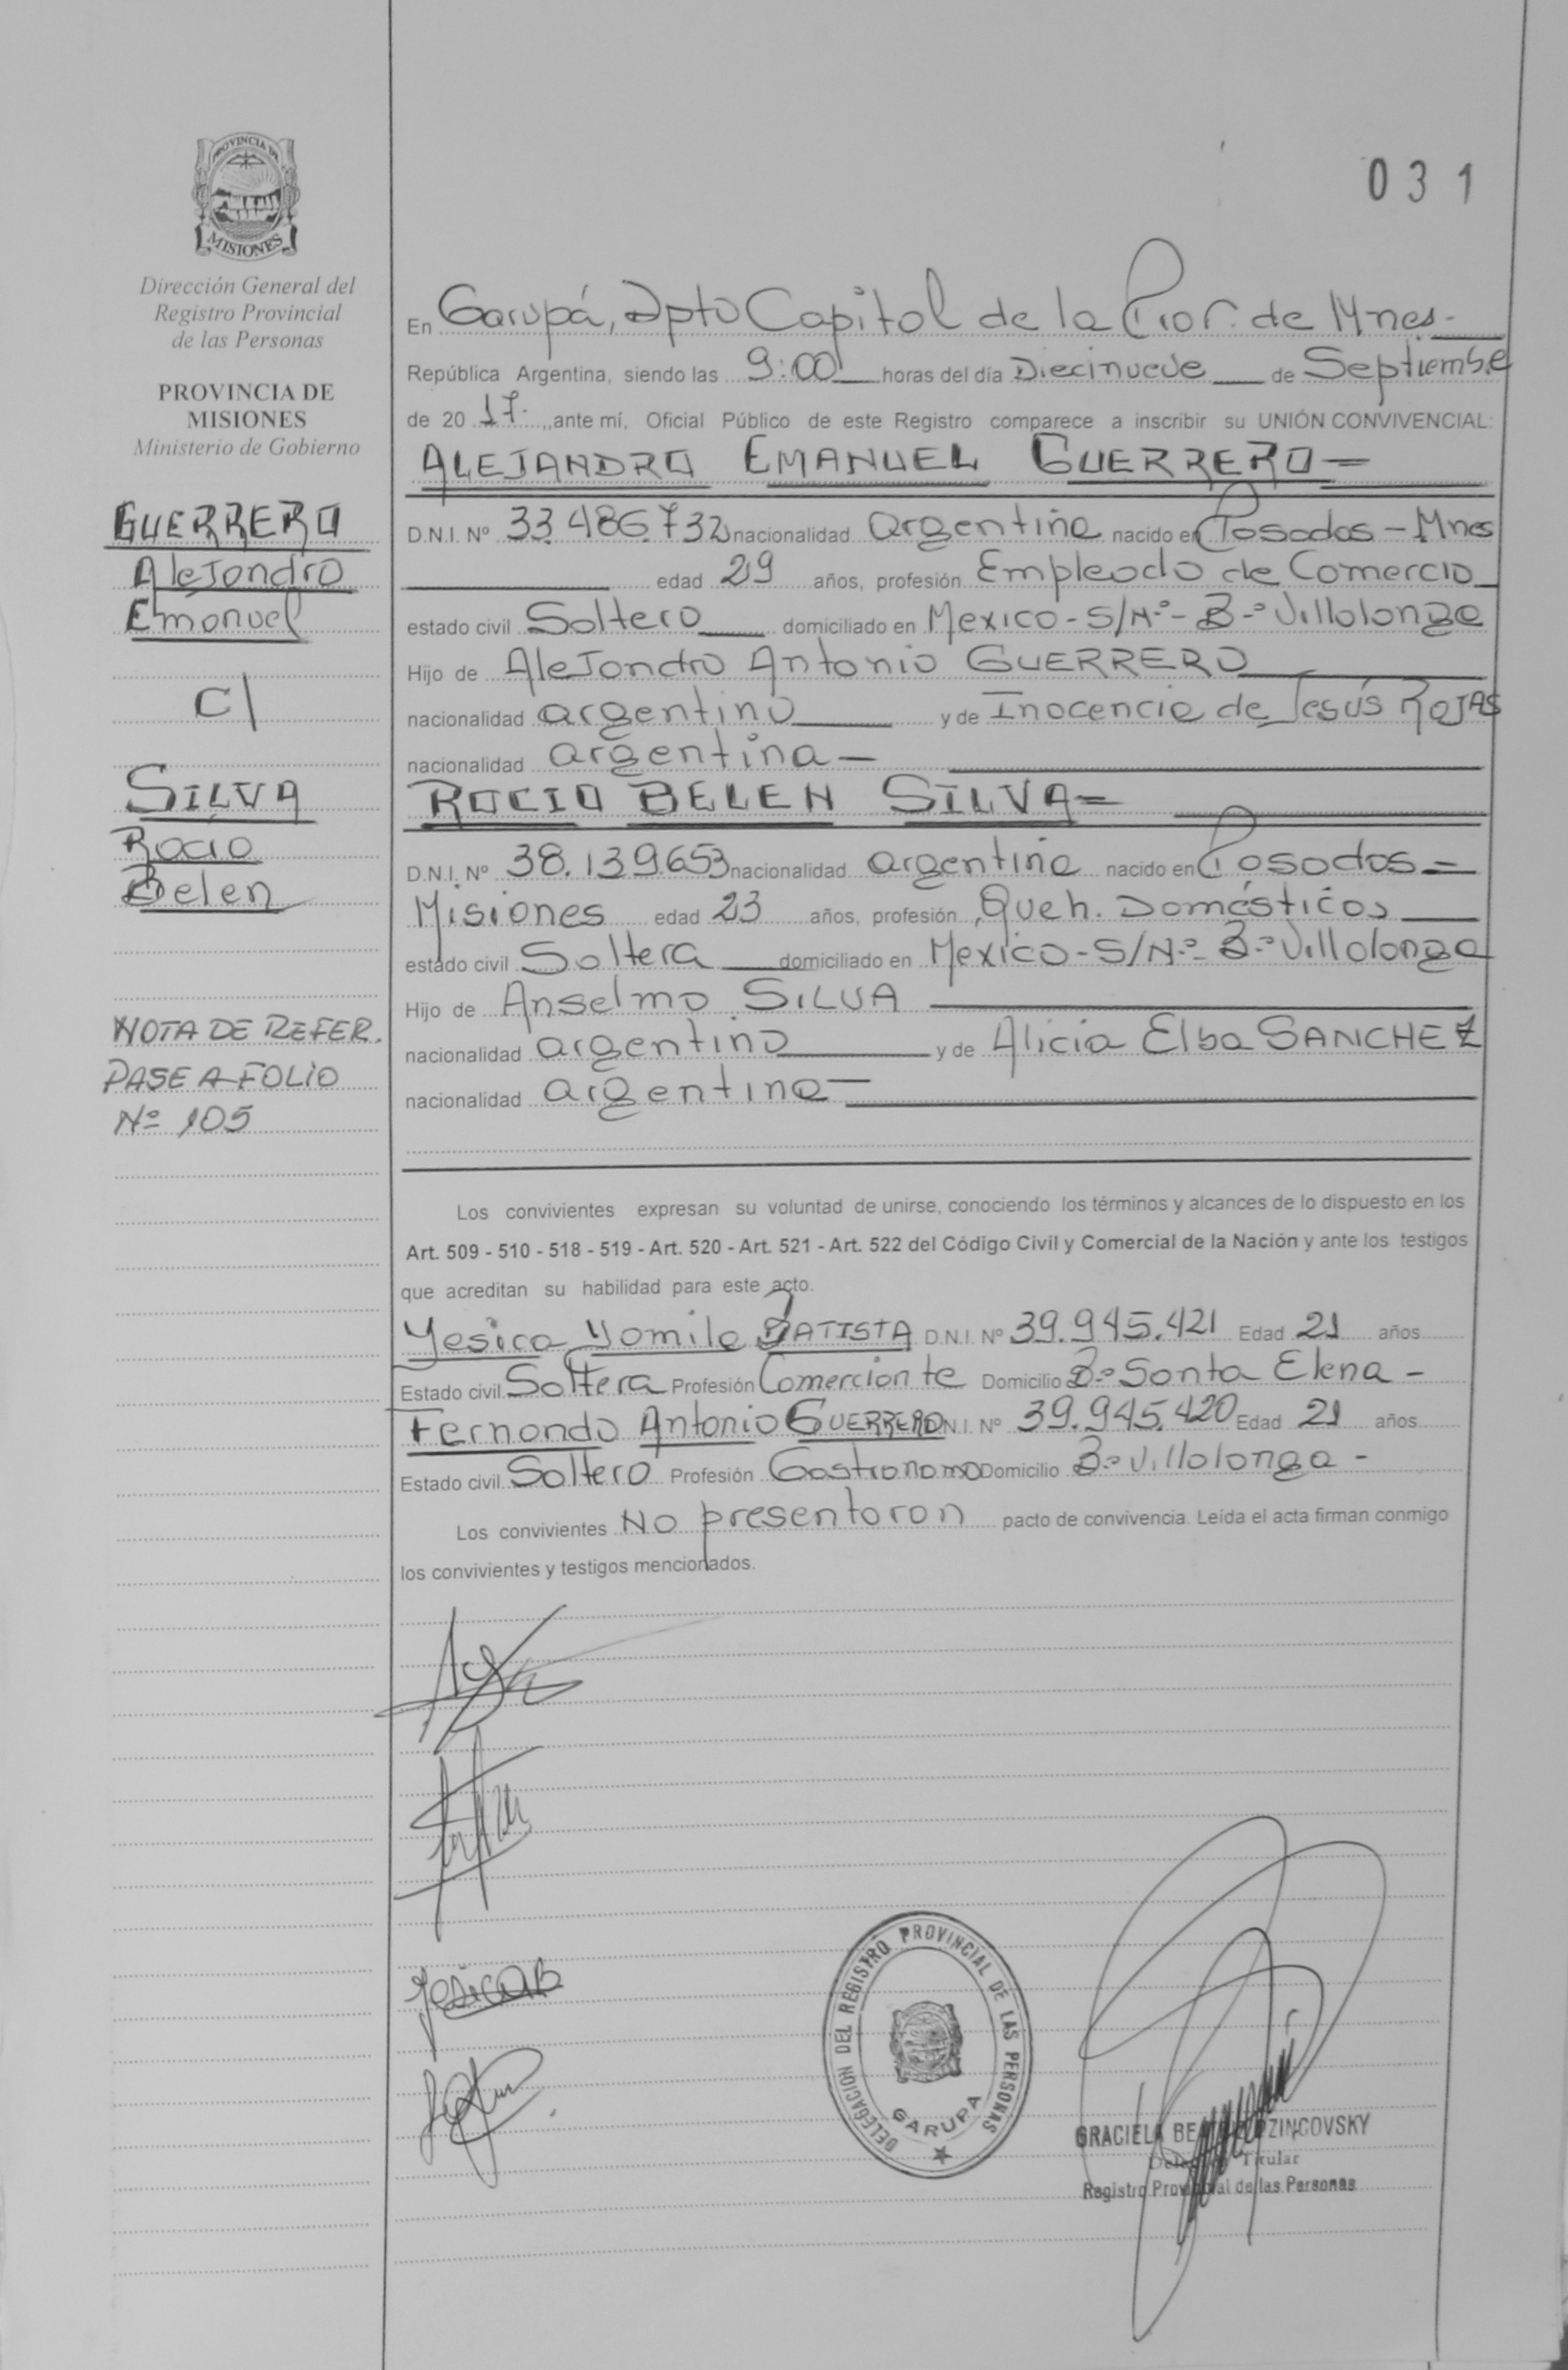 031
PROVINCIA DE
MISIONES
Dirección General del
Registro Provincial
de las Personas
PROVINCIA DE
MISIONES
Ministerio de Gobierno
GUERRERO
Alejandro
Emanuel
C/
SILVA
Rocio
Belen
NOTA DE REFER.
PASE A FOLIO
Nº 105
En Garupá, Dpto Capital de la Prov. de Mnes-
República Argentina, siendo las 9:00 horas del día Diecinueve de Septiembre
de 20 17 ,,ante mí, Oficial Público de este Registro comparece a inscribir su UNIÓN CONVIVENCIAL:
ALEJANDRO EMANUEL GUERRERO=
D.N.I. Nº 33.486.732 nacionalidad argentina nacido en Posadas - Mnes
edad 29 años, profesión Empleado de Comercio
estado civil Soltero domiciliado en Mexico - S/Nº - Bº Villalonga
Hijo de Alejandro Antonio GUERRERO
nacionalidad argentino y de Inocencia de Jesús ROJAS
nacionalidad argentina -
ROCIO BELEN SILVA=
D.N.I. Nº 38.139.653 nacionalidad argentina nacido en Posadas =
Misiones edad 23 años, profesión Queh. Domésticos
estado civil Soltera domiciliado en Mexico - S/Nº - Bº Villalonga
Hijo de Anselmo SILVA
nacionalidad argentino y de Alicia Elba SANCHEZ
nacionalidad argentina -
Los convivientes expresan su voluntad de unirse, conociendo los términos y alcances de lo dispuesto en los
Art. 509 - 510 - 518 - 519 - Art. 520 - Art. 521 - Art. 522 del Código Civil y Comercial de la Nación y ante los testigos
que acreditan su habilidad para este acto.
Yesica Yamila BATISTA D.N.I. Nº 39.945.421 Edad 21 años
Estado civil Soltera Profesión Comerciante Domicilio Bº Santa Elena -
Fernando Antonio GUERRERO D.N.I. Nº 39.945.420 Edad 21 años
Estado civil Soltero Profesión Gastronomo Domicilio Bº Villalonga -
Los convivientes No presentaron pacto de convivencia. Leída el acta firman conmigo
los convivientes y testigos mencionados.
Yesica B
DELEGACION DEL REGISTRO PROVINCIAL DE LAS PERSONAS
GARUPA
GRACIELA
Titular
Registro Provincial de las Personas